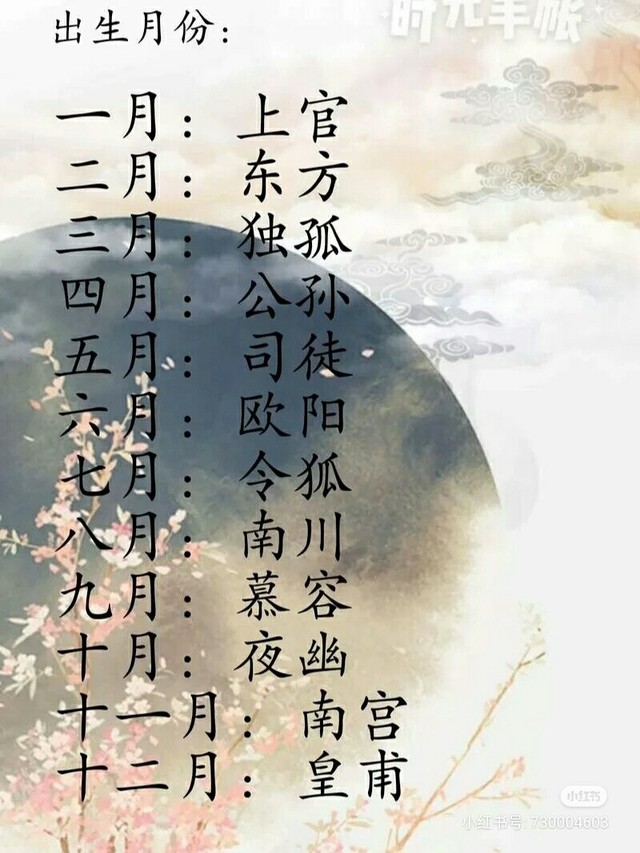 时光手帐
出生月份：
一月：上官
二月：东方
三月：独孤
四月：公孙
五月：司徒
六月：欧阳
七月：令狐
八月：南川
九月：慕容
十月：夜幽
十一月：南宫
十二月：皇甫
小红书
小红书号: 730004603